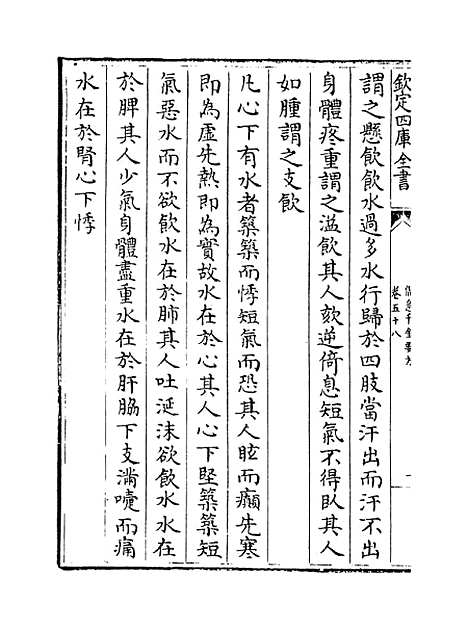 欽定四庫全書
備急千金要方
卷五十八
謂之懸飲飲水過多水行歸於四肢當汗出而汗不出
身體疼重謂之溢飲其人欬逆倚息短氣不得臥其人
如腫謂之支飲
凡心下有水者築築而悸短氣而恐其人眩而癲先寒
即為虛先熱即為實故水在於心其人心下堅築築短
氣惡水而不欲飲水在於肺其人吐涎沫欲飲水水在
於脾其人少氣身體盡重水在於肝脇下支滿嚏而痛
水在於腎心下悸